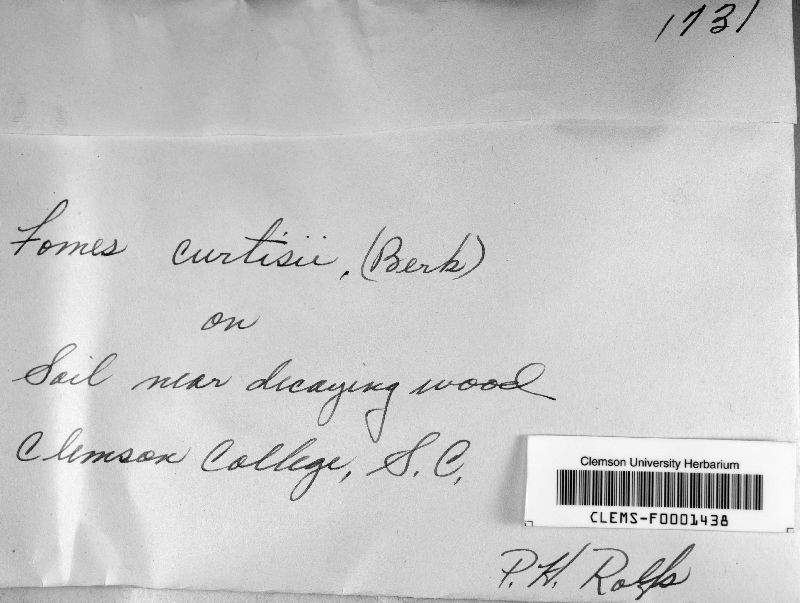 1731
Fomes curtisii, (Berk)
on
Soil near decaying wood
Clemson College, S.C.
Clemson University Herbarium
CLEMS-F0001438
P.H. Rolfs